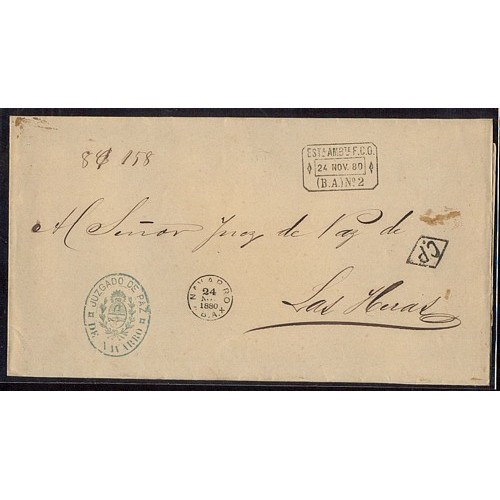 EST.ª AMB.TE F.C.O.
24 NOV. 80
(B.A.) Nº 2
Al Señor Juez de Paz de
Las Heras
C.P.
NAVARRO
24
NOV
1880
B.A.
JUZGADO DE PAZ
DE NAVARRO